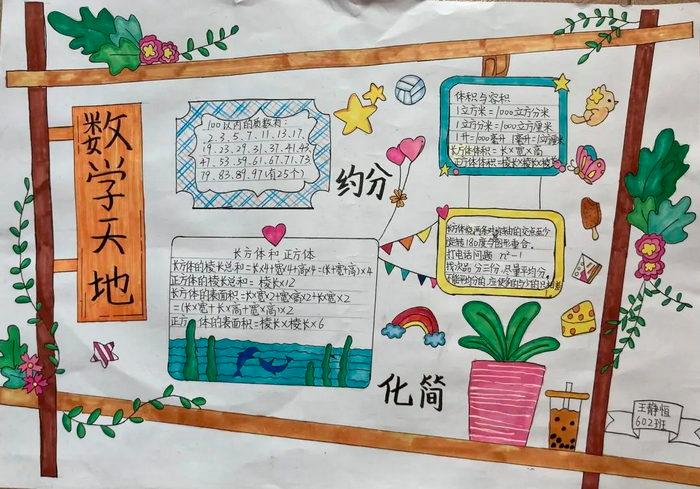 数学天地
100以内的质数有:
2.3.5.7.11.13.17.
19.23.29.31.37.41.43
47.53.59.61.67.71.73
79.83.89.97(有25个)
约分
体积与容积
1立方米=1000立方分米
1立方分米=1000立方厘米
1升=1000毫升 1毫升=1立方厘米
长方体体积=长×宽×高
正方体体积=棱长×棱长×棱长
长方体和正方体
长方体的棱长总和=长×4+宽×4+高×4=(长+宽+高)×4
正方体的棱长总和=棱长×12
长方体的表面积=长×宽×2+宽×高×2+长×宽×2
=(长×宽+长×高+宽×高)×2
正方体的表面积=棱长×棱长×6
长方体绕两条对称轴的交点至少
旋转180度与图形重合。
打电话问题 n²-1
找次品 分三份,尽量平均分,
化简
王静恒
602班